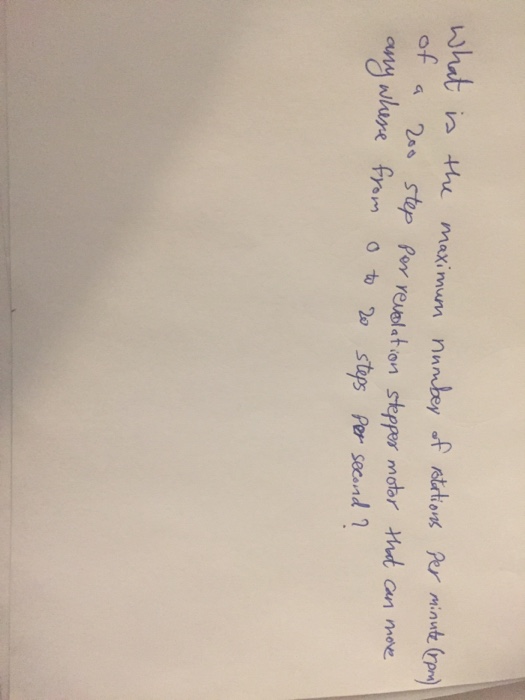 What is the maximum number of rotations per minute (rpm)
of a 200 step per revolution stepper motor that can move
anywhere from 0 to 20 steps per second?